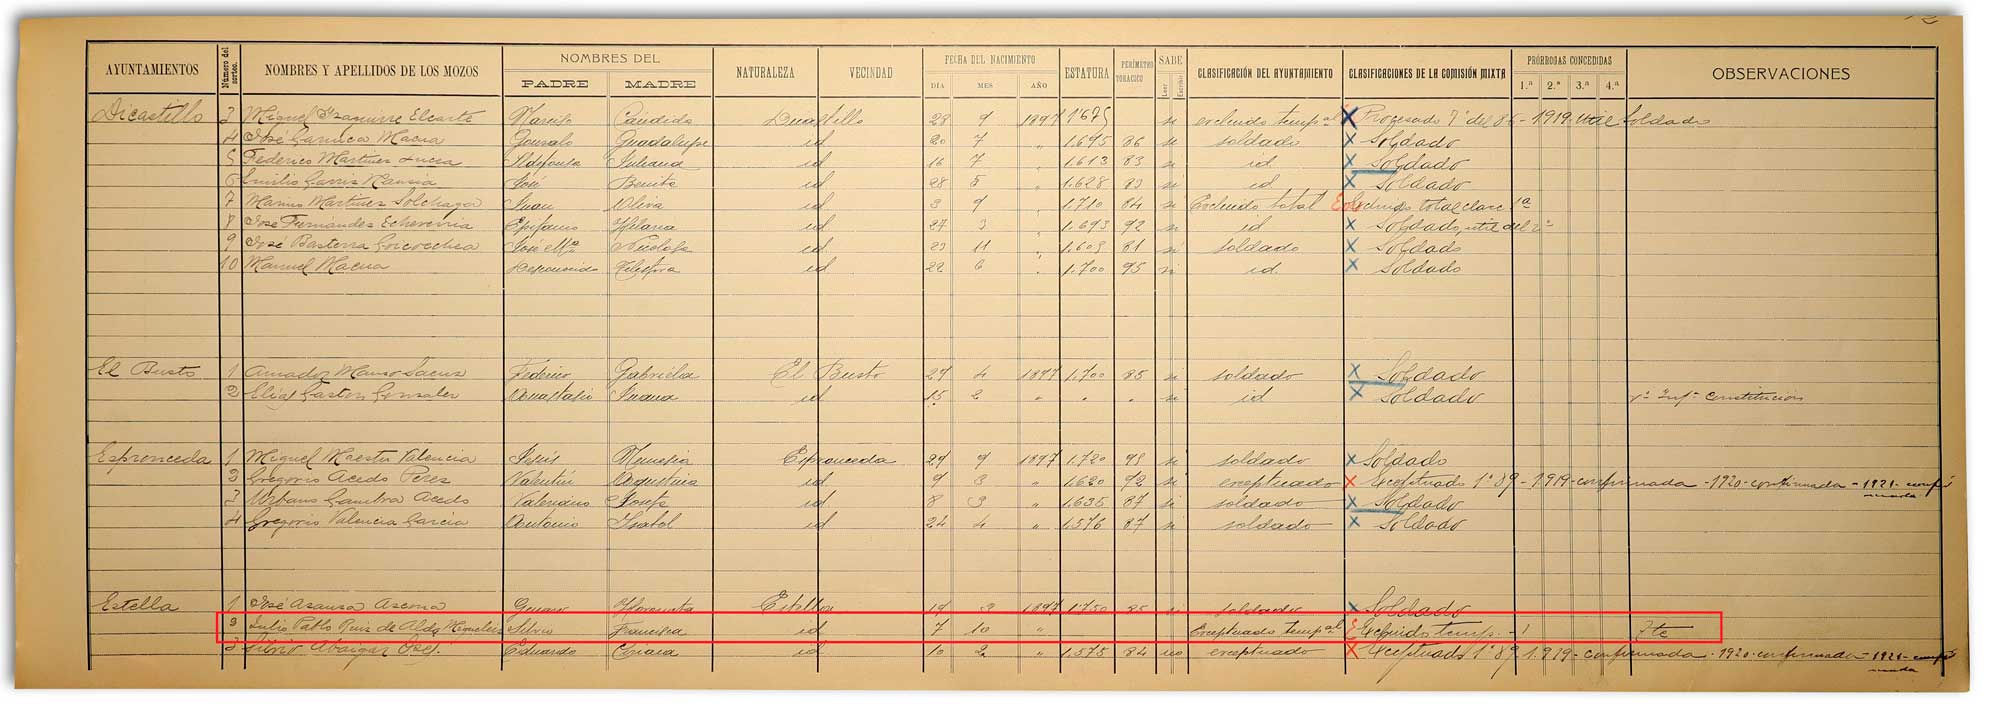 AYUNTAMIENTOS Número del sorteo. NOMBRES Y APELLIDOS DE LOS MOZOS NOMBRES DEL PADRE MADRE NATURALEZA VECINDAD FECHA DEL NACIMIENTO DÍA MES AÑO ESTATURA PERÍMETRO TORACICO SABE Leer Escribir CLASIFICACIÓN DEL AYUNTAMIENTO CLASIFICACIONES DE LA COMISIÓN MIXTA PRÓRROGAS CONCEDIDAS 1.ª 2.ª 3.ª 4.ª OBSERVACIONES
Dicastillo 3 Miguel Elcarte Narciso Candida Dicastillo 28 9 1897 1'675 si excluido temp.al X Procesado 1919 util Soldado
4 José Garnica Macua Gonzalo Guadalupe id 20 7 " 1.695 86 si soldado X Soldado
5 Federico Martinez Ildefonso Juliana id 16 7 " 1.613 83 si id X Soldado
6 Emilio José Benita id 28 5 " 1.628 83 si id X Soldado
7 Martinez Solchaga Juan Oliva id 3 9 " 1.710 84 si Excluido total Excluido total clase 1ª
8 José Fernández Echeverria Epifanio Hilaria id 27 3 " 1.693 92 si id X Soldado, util del 2º
9 José Basterra Goicoechea José Mª Nicolasa id 23 11 " 1.609 81 si soldado X Soldado
10 Manuel Macua Desconocido id 22 6 " 1.700 95 si id. X Soldado
El Busto 1 Amador Federico Gabriela El Busto 27 4 1897 1.700 85 si soldado X Soldado
2 Elías Gastón Gonzalez Anastasio Juana id 15 2 " " " si id X Soldado Infª Constitución
Espronceda 1 Miguel Maestu Valencia Jesús Nemesia Espronceda 29 9 1897 1.720 98 si soldado X Soldado
3 Gregorio Acedo Perez Valentin Agustina id 9 3 " 1.620 92 si exceptuado X Exceptuado 1º 89 - 1919 - confirmada - 1920 - confirmada - 1921 - confirmada
2 Urbano Gambra Acedo Valeriano Josefa id 8 3 " 1.635 87 si soldado X Soldado
4 Gregorio Valencia Garcia Antonio Isabel id 24 4 " 1.576 87 si soldado X Soldado
Estella 1 José Ascona Estella 19 3 1897 1.750 85 si soldado X Soldado
Julio Pablo Ruiz de Alda Miqueleiz Silvio Francisca id 7 10 " Exceptuado temp.al Excluido temp. - 1 Tte
3 Silvio Abaigar Eduardo id 10 2 " 1.575 84 no exceptuado X Exceptuado 1º 89 1919 - confirmada - 1920 - confirmada - 1921 - confirmada